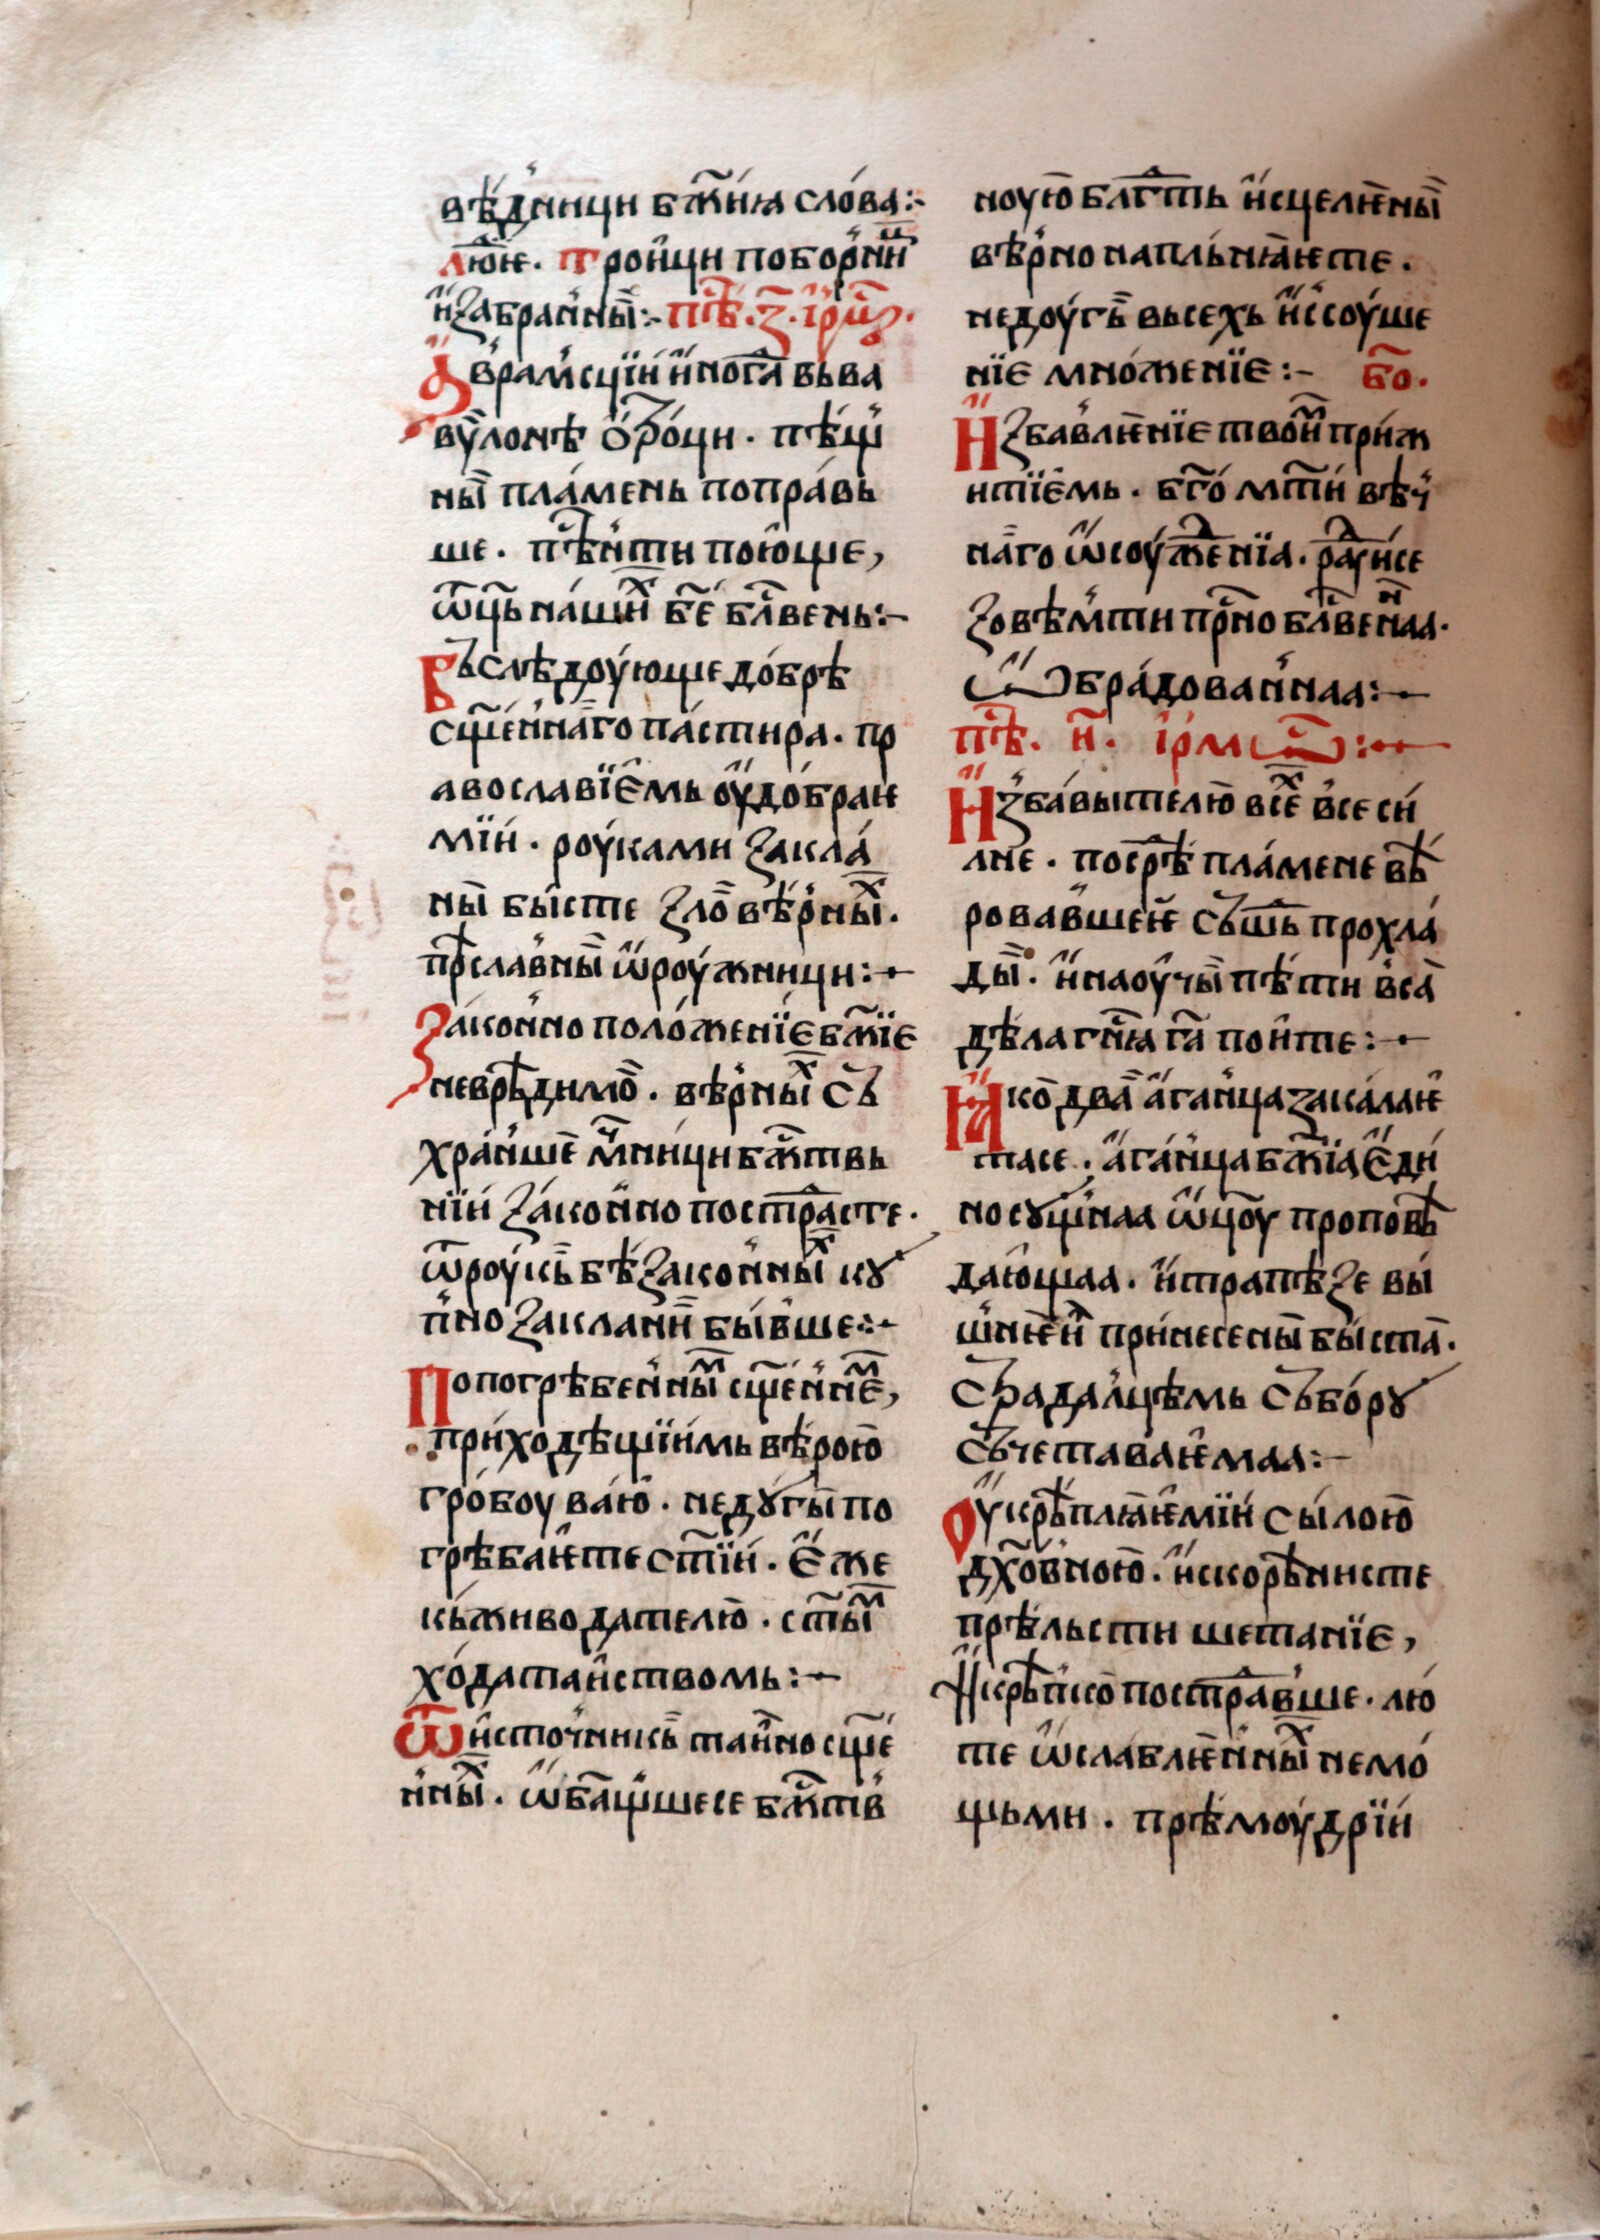 вѣ́дници бж҃їиꙗ сло́ва:-
лю́їе. Трои̂ци побо́рнїи
и҆забра́нныи:- пѣ́. з҃. і҆рмⷭ.
А҆врамсцїи и҆ногⷣа вьва
вѷлонѣ ѻ҆троци. пѣщ
ны̏ пла́мень попра́вь
ше. пѣ́нти пою҆ще,
ѿц҃ь на́шиⷯ бж҃е бл҃вень:-
Вьслѣдоу́юще до́брѣ
сщ҃е́ннаго па́стира. пр
авославїе́мь оу҆до́брае
мїи. роу́ками закла́
ны̏ бы́сте злѡвѣ́рныⷯ.
прⷭ҇лавны̏ ѡ҆роу́жници:-
Зако́нно поло́женїе бж҃їе
неврѣ́димо. вѣ́рныⷯ сь
хра́нше мч҃ници бжⷭ҇твь
нїи за́конно пострⷣасте.
ѿроу́кь бѣзако́нныⷯ кꙋ
пно закла́ни бы́вше:-
По погрѣбе́ннымⷨ сщ҃е́нне,
приходѣщїи́мь вѣ́рою
гро́боу ва́ю. недꙋ́гы по
грѣба́ѥте ст҃їи. є҆же
кь животода́телю. ст҃ыⷨ
хо́дата́иствомь:-
Ѿ и҆сто́чникь та́ино сщ҃е
нныⷯ. ѡ҆баще́шесе бжⷭ҇тв
ноую блгⷣть и҆сцеле́ны̏
вѣ́рно напльнꙗѥте.
недоу́гь вьсехь и҆ссоу́ше
нїе мно́женїе:- бо҃.
И҆збавле́нїе твои́мⷨ приѥ
нтїе́мь. бг҃о мт҃и вѣч
на́го ѡ҆соуж́енїа. рⷣауисе
зовѣ́мти прⷭ҇но бл҃венⷩаа.
Ѡ҆бра́дова́ннаа:-
пѣ́. и҃. і҆рмѡⷭ:-
И҆зба́вытелю всеⷯ все си́
лне. посрⷣѣ пла́мене вѣ
рова́вшеи сьшь прохла́
ды̏. и҆ наоу҆чы̏ пѣ́ти вса̏
дѣ́ла гн҃ꙗ га҃ по́ите:-
Ꙗ҆ко два̏ а҆га́нца зака́лаѥ
тасе. а҆га́нца бж҃їа є҆ди́
носꙋ́щнаа ѿц҃оу проповѣ́
да́ющаа. и҆ трапѣ́зе вы́
шнѥи прине́сены̏ бы́ста.
Страда́лцѣмь сьбо́рꙋ
сьчетава́ѥмаа:-
Оу҆крѣплꙗѥмїи сы́лою
дх҃о́вною. и҆скорѣ́нисте
прѣ́льсти шета́нїе,
и҆ крѣ́пко пострⷣавше. лю́
те ѡ҆слабле́нныⷯ немо́
щьми. прѣмоу́дрїи